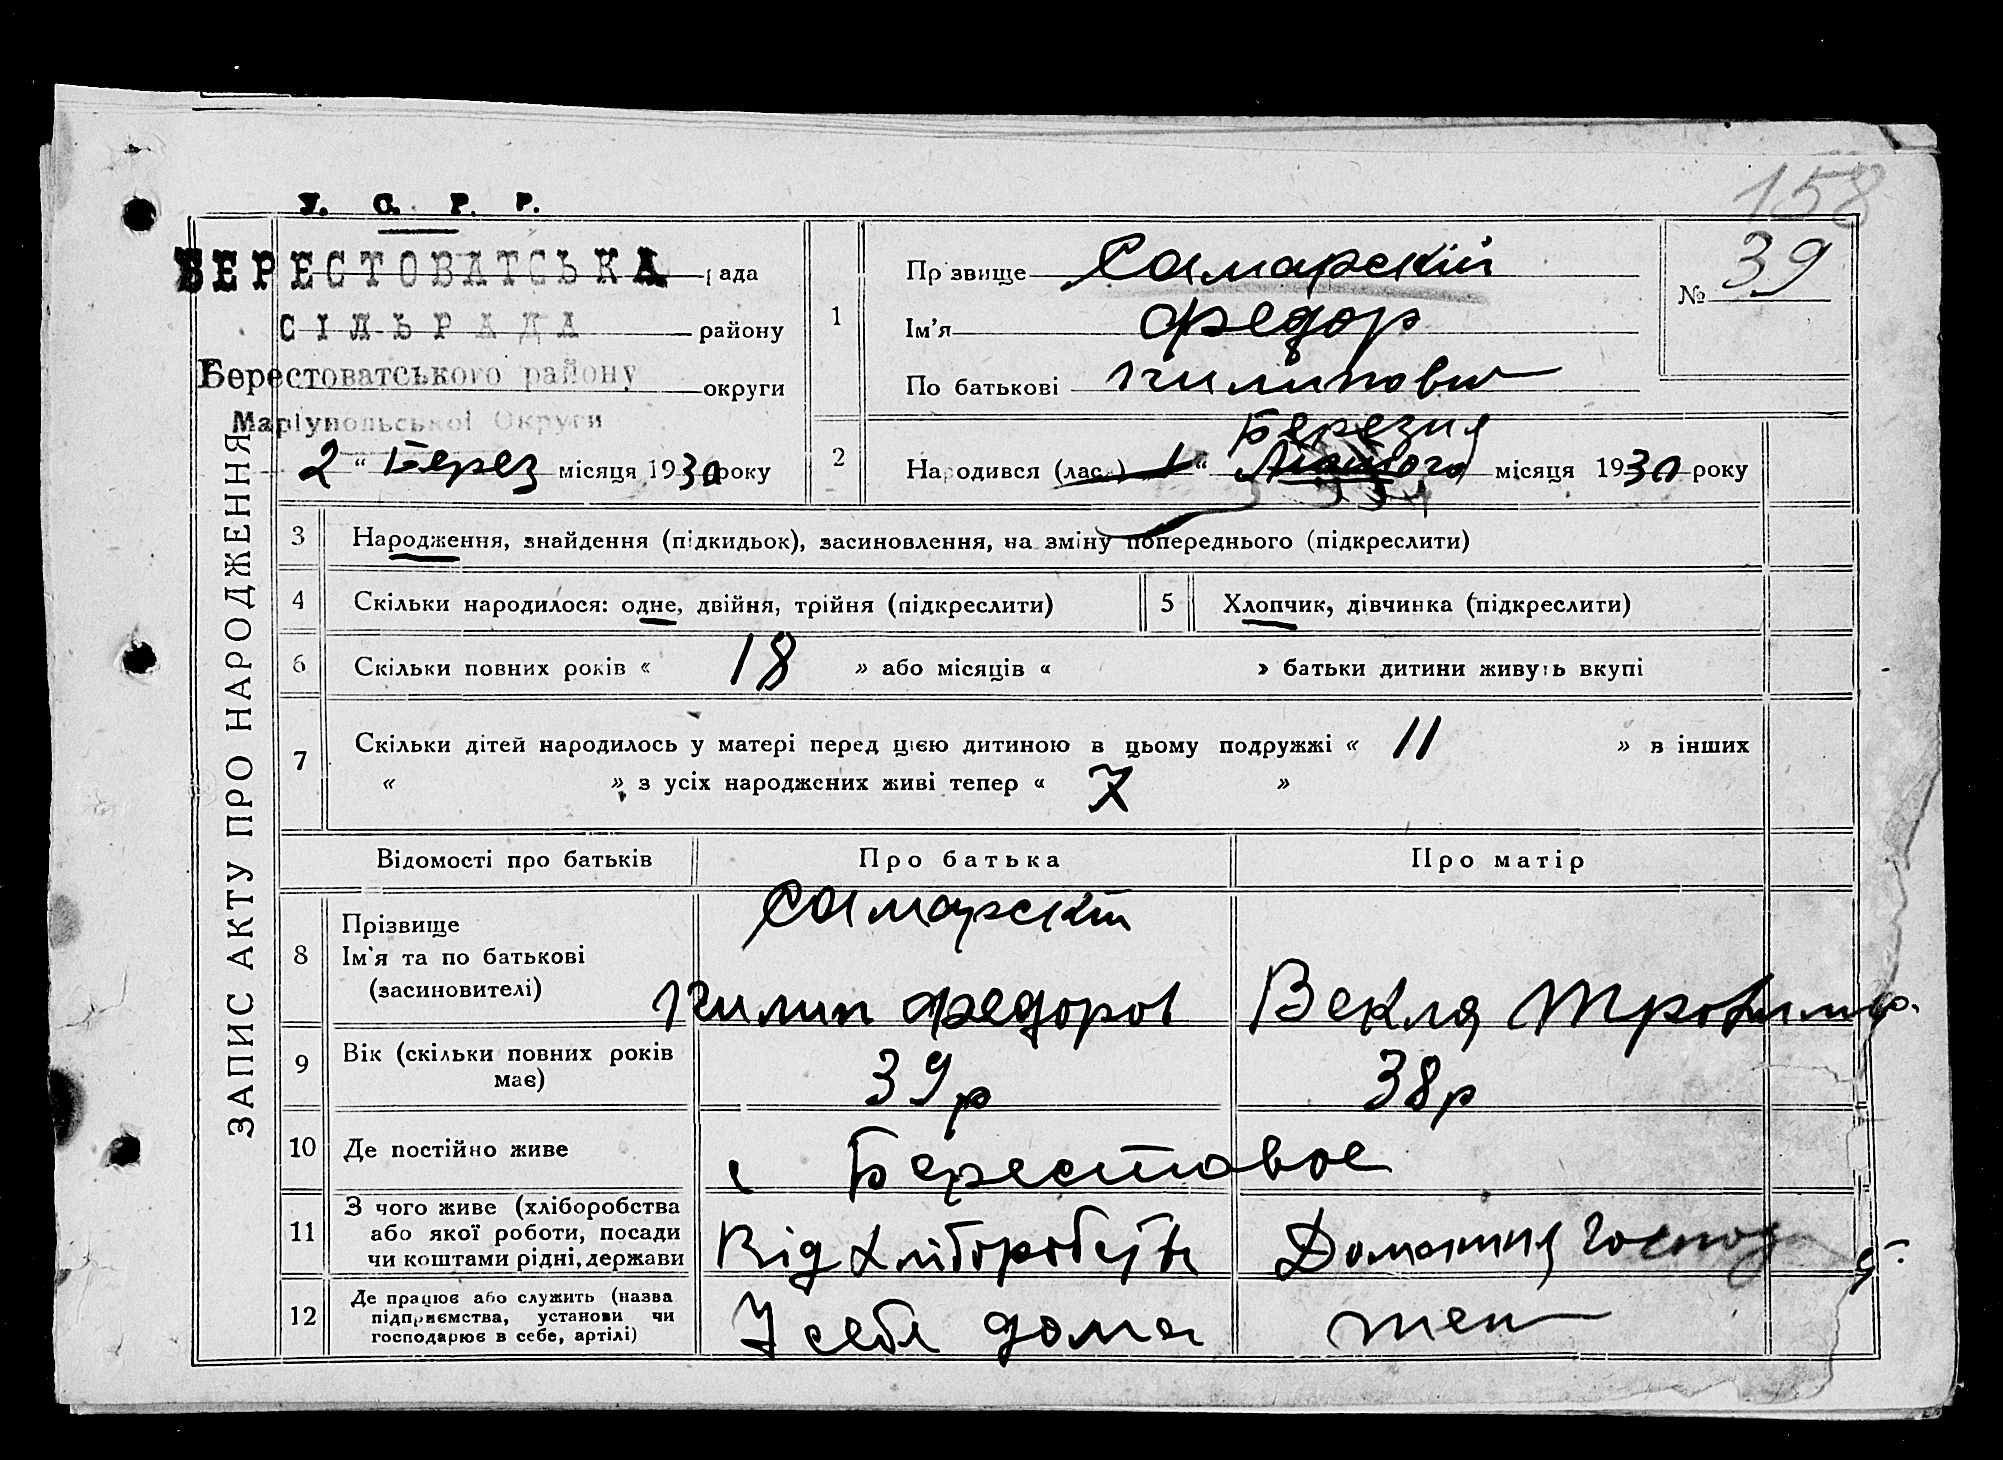 158
У. С. Р. Р.
БЕРЕСТОВАТСЬКА рада
СІЛЬРАДА району
Берестоватського району округи
Маріупольської Округи
2 " Берез місяця 1930 року
ЗАПИС АКТУ ПРО НАРОДЖЕННЯ
1 Прізвище Самарский
Ім'я Федор
По батькові Пилипович
№ 39
Березня
2 Народився (лась) 1 " Лютого місяця 1930 року
3 Народження, знайдення (підкидьок), засиновлення, на зміну попереднього (підкреслити)
4 Скільки народилося: одне, двійня, трійня (підкреслити) 5 Хлопчик, дівчинка (підкреслити)
6 Скільки повних років « 18 » або місяців « » батьки дитини живуть вкупі
7 Скільки дітей народилось у матері перед цією дитиною в цьому подружжі « 11 » в інших
« » з усіх народжених живі тепер « 7 »
Відомості про батьків Про батька Про матір
8 Прізвище
Ім'я та по батькові
(засиновителі)
Самарский
Пилип Федоров Векля Трофимов.
9 Вік (скільки повних років
має)
39 р 38 р
10 Де постійно живе с Берестовое
11 З чого живе (хліборобства
або якої роботи, посади
чи коштами рідні, держави
Від Хліборобств Домашня Господ
12 Де працює або служить (назва
підприємства, установи чи
господарює в себе, артілі)
У себя дома теж